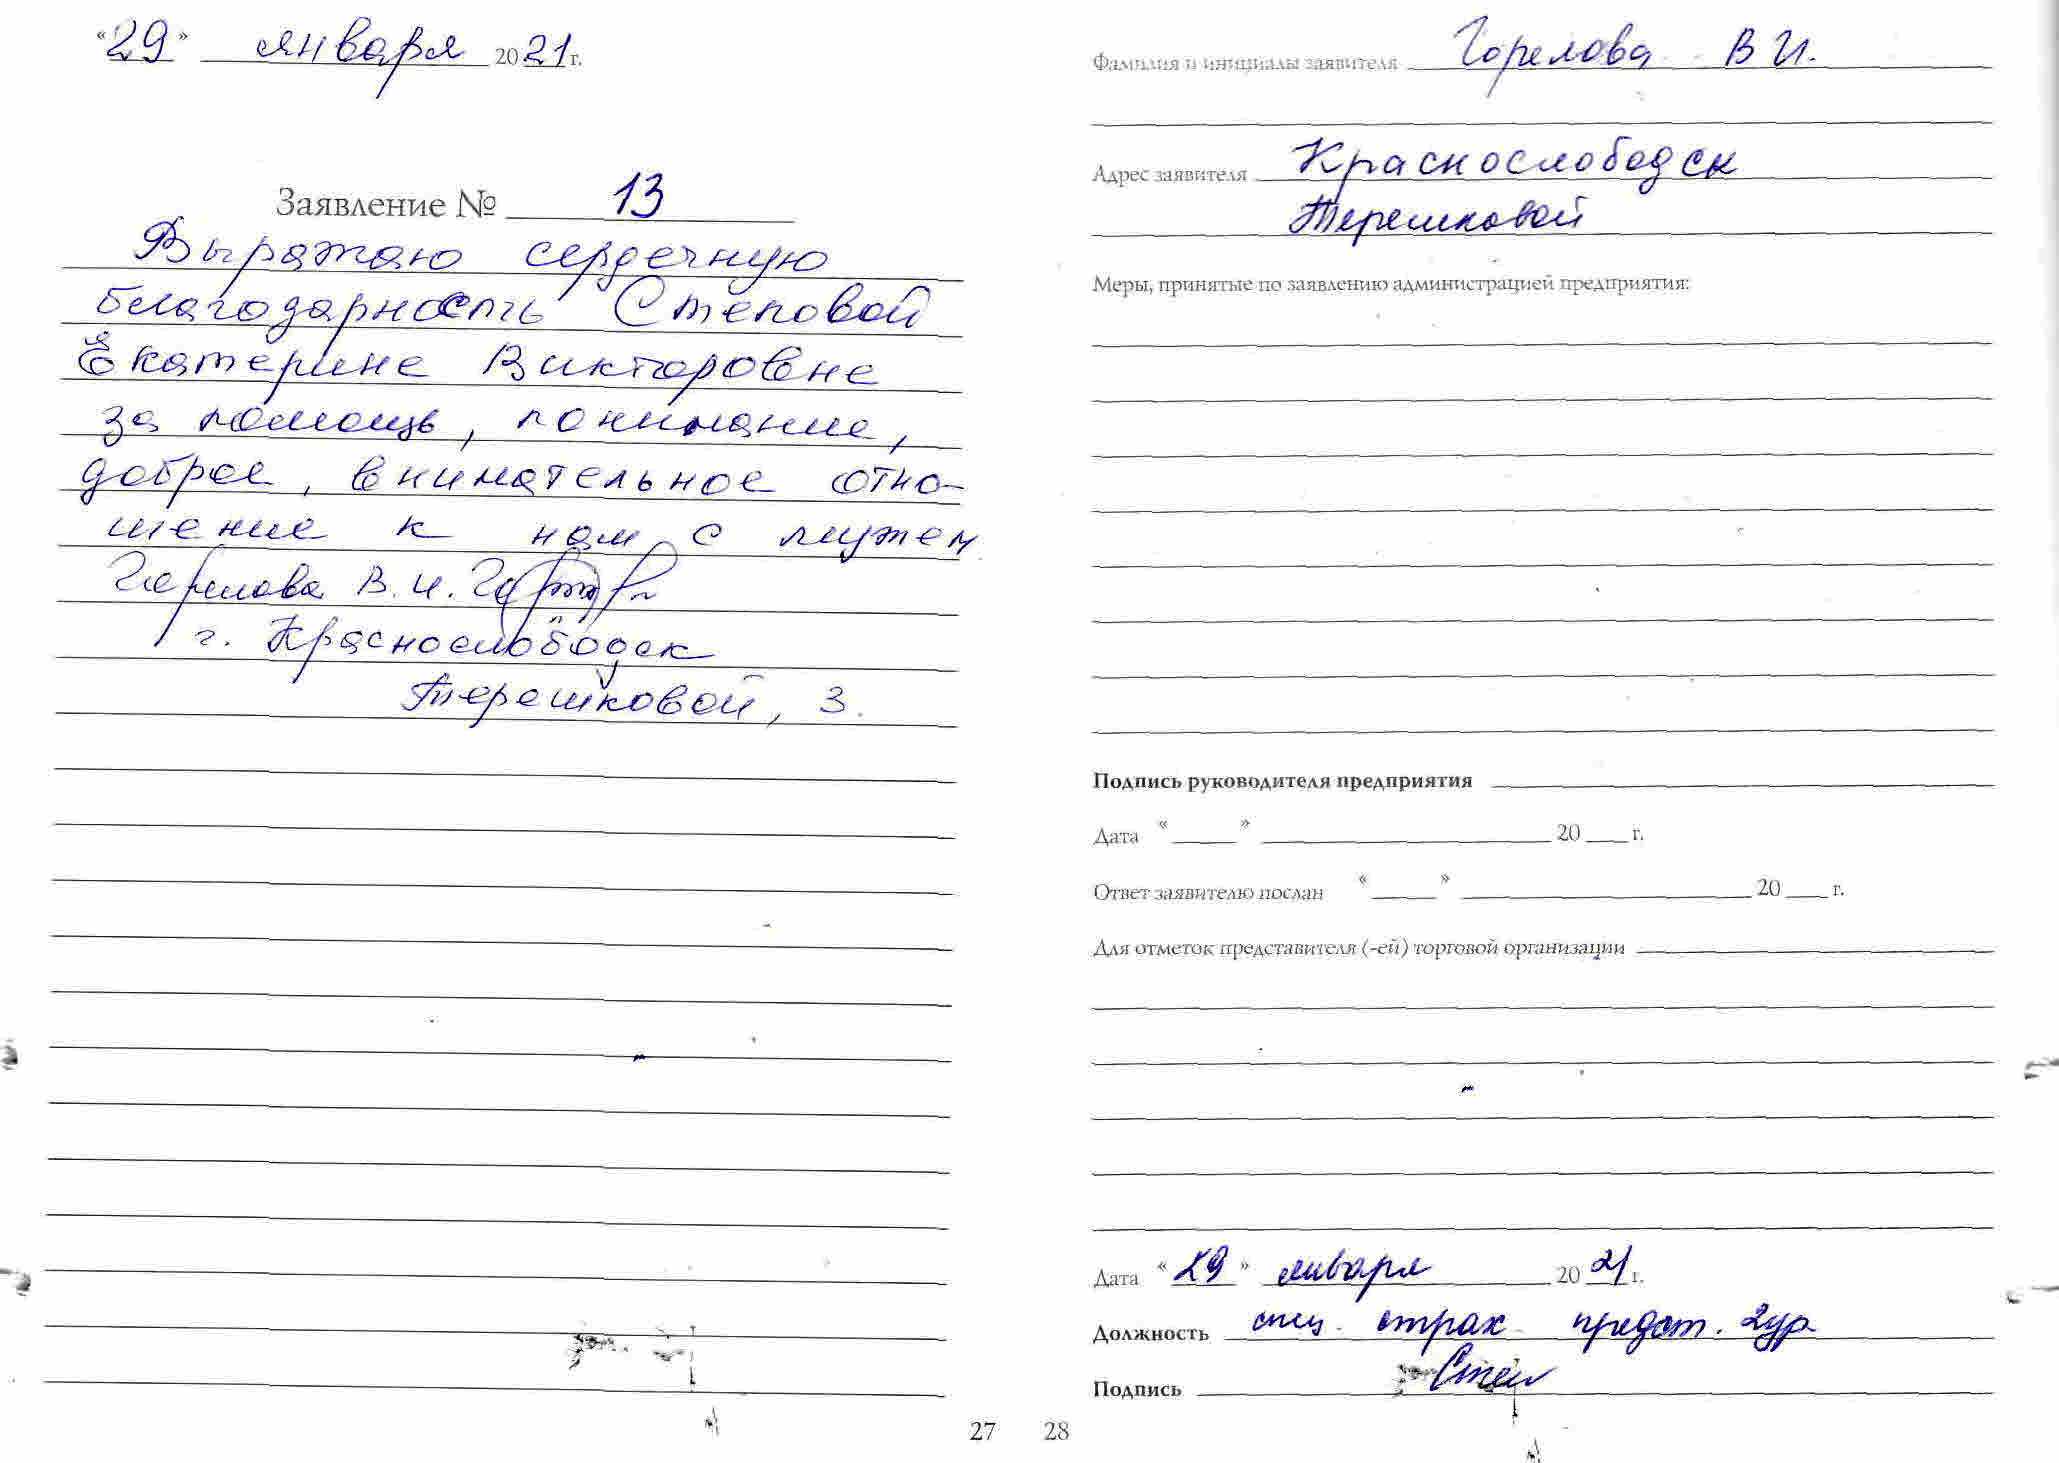 «29» января 2021 г.
Заявление № 13
Выражаю сердечную
благодарность Степовой
Екатерине Викторовне
за помощь, понимание,
доброе, внимательное отно-
шение к нам с мужем
Горелова В.И.
г. Краснослободск
Терешковой, 3.
27
Фамилия и инициалы заявителя Горелова В И.
Адрес заявителя Краснослободск
Терешковой
Меры, принятые по заявлению администрацией предприятия:
Подпись руководителя предприятия
Дата « » 20 г.
Ответ заявителю послан « » 20 г.
Для отметок представителя (-ей) торговой организации
Дата «29» января 2021 г.
Должность спец. страх. предст. 2 ур
Подпись Степ
28